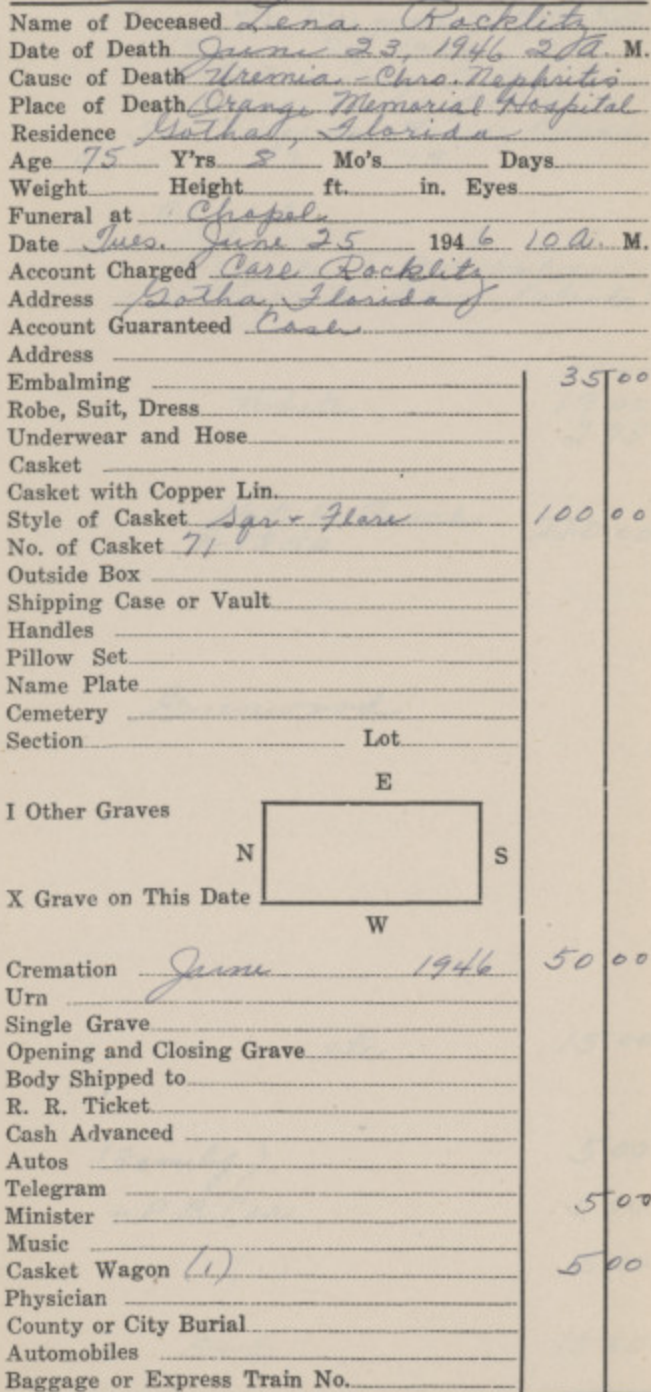 Name of Deceased Lena Rocklitz
Date of Death June 23, 1946 2 A. M.
Cause of Death Uremia - Chro. Nephritis
Place of Death Orange Memorial Hospital
Residence Gotha, Florida
Age 75 Y'rs 8 Mo's Days
Weight Height ft. in. Eyes
Funeral at Chapel
Date Tues. June 25 1946 10 A. M.
Account Charged Care Rocklitz
Address Gotha, Florida
Account Guaranteed
Address
Embalming 35 00
Robe, Suit, Dress
Underwear and Hose
Casket
Casket with Copper Lin.
Style of Casket Sqr + Flare 100 00
No. of Casket 71
Outside Box
Shipping Case or Vault
Handles
Pillow Set
Name Plate
Cemetery
Section Lot
E
I Other Graves
N S
X Grave on This Date
W
Cremation June 1946 50 00
Urn
Single Grave
Opening and Closing Grave
Body Shipped to
R. R. Ticket
Cash Advanced
Autos
Telegram
Minister 5 00
Music
Casket Wagon (1) 5 00
Physician
County or City Burial
Automobiles
Baggage or Express Train No.